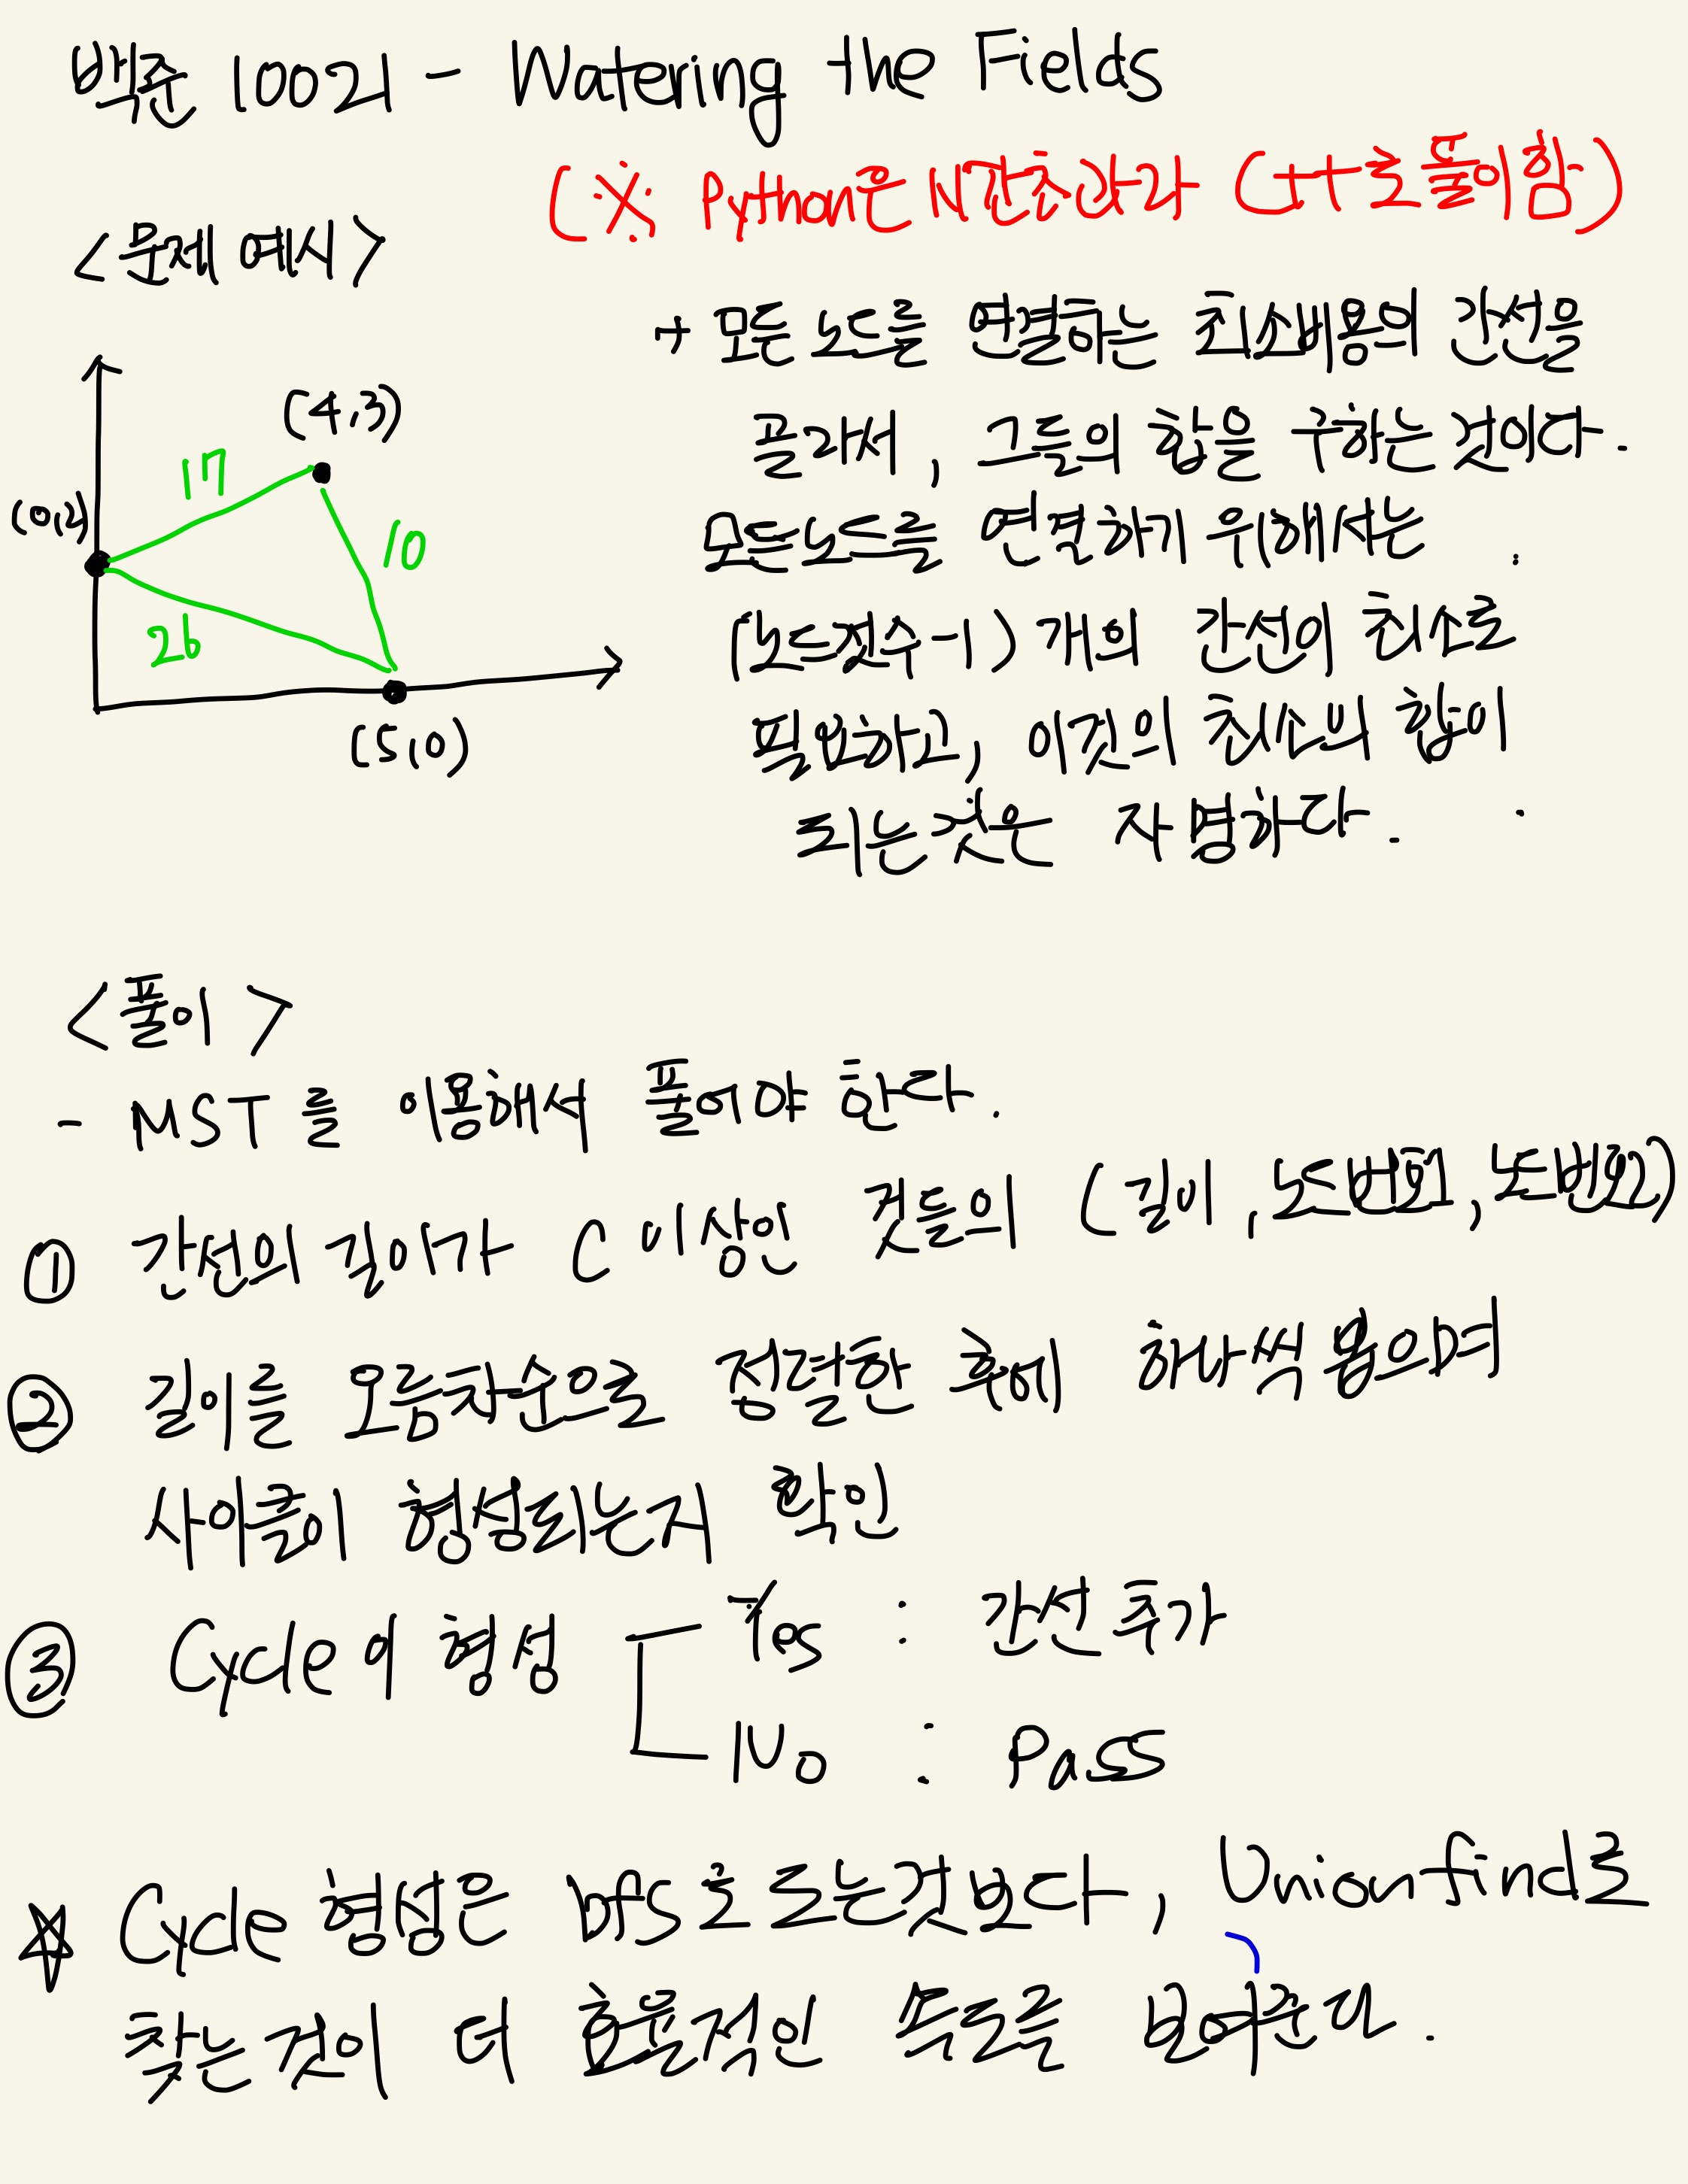 백준 10021 - Watering the Fields
(※ Python은 시간초과라 C++로 풀이함)
<문제 예시>
→ 모든 노드를 연결하는 최소비용의 간선을
골라서, 그들의 합을 구하는 것이다.
모든 노드를 연결하기 위해서는
(노드갯수-1) 개의 간선이 최소로
필요하고, 이것의 최소의 합이
되는것은 자명하다.
(4,3)
17
(0,2)
10
26
(5,0)
<풀이>
- MST를 이용해서 풀어야 한다.
① 간선의 길이가 C 이상인 것들의 (길이, 노드번호1, 노드번호2)
② 길이를 오름차순으로 정렬한 후에 하나씩 뽑으며
사이클이 형성되는지 확인
③ Cycle이 형성
Yes : 간선 추가
No : Pass
☆ Cycle 형성은 Dfs로 도는것보다, Unionfind로
찾는것이 더 효율적인 속도를 보여준다.